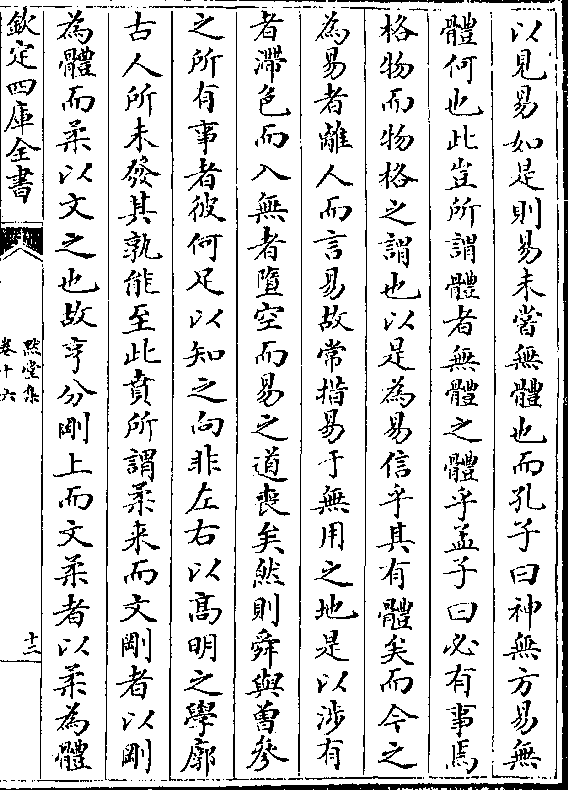 以見易如是則易未嘗無體也而孔子曰神無方易無
體何也此豈所謂體者無體之體乎孟子曰必有事焉
格物而物格之謂也以是為易信乎其有體矣而今之
為易者離人而言易故常措易于無用之地是以涉有
者滯色而入無者墮空而易之道喪矣然則舜與曽參
之所有事者彼何足以知之向非左右以髙明之學廓
古人所未發其孰能至此賁所謂柔来而文剛者以剛
為體而柔以文之也故亨分剛上而文柔者以柔為體
欽定四庫全書
默堂集
卷十六
十三